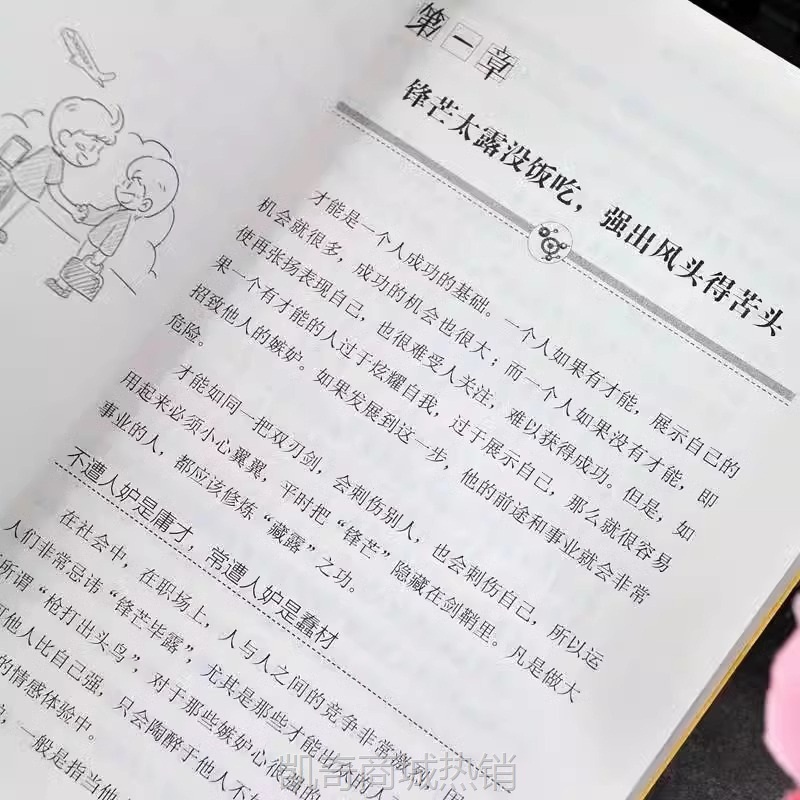 第一章
锋芒太露没饭吃，强出风头得苦头
才能是一个人成功的基础。一个人如果有才能，展示自己的
机会就很多，成功的机会也很大；而一个人如果没有才能，即
使再张扬表现自己，也很难受人关注，难以获得成功。但是，如
果一个有才能的人过于炫耀自我，过于展示自己，那么就很容易
招致他人的嫉妒。如果发展到这一步，他的前途和事业就会非常
危险。
才能如同一把双刃剑，会刺伤别人，也会刺伤自己，所以运
用起来必须小心翼翼，平时把“锋芒”隐藏在剑鞘里。凡是做大
事业的人，都应该修炼“藏露”之功。
不遭人妒是庸才，常遭人妒是蠢材
在社会中，在职场上，人与人之间的竞争非常激烈，因
人们非常忌讳“锋芒毕露”，尤其是那些才能出众的人
所谓“枪打出头鸟”，对于那些嫉妒心很强的
他人比自己强，只会陶醉于他人不
的情感体验中。
一般是指当他
凯奇商城热销